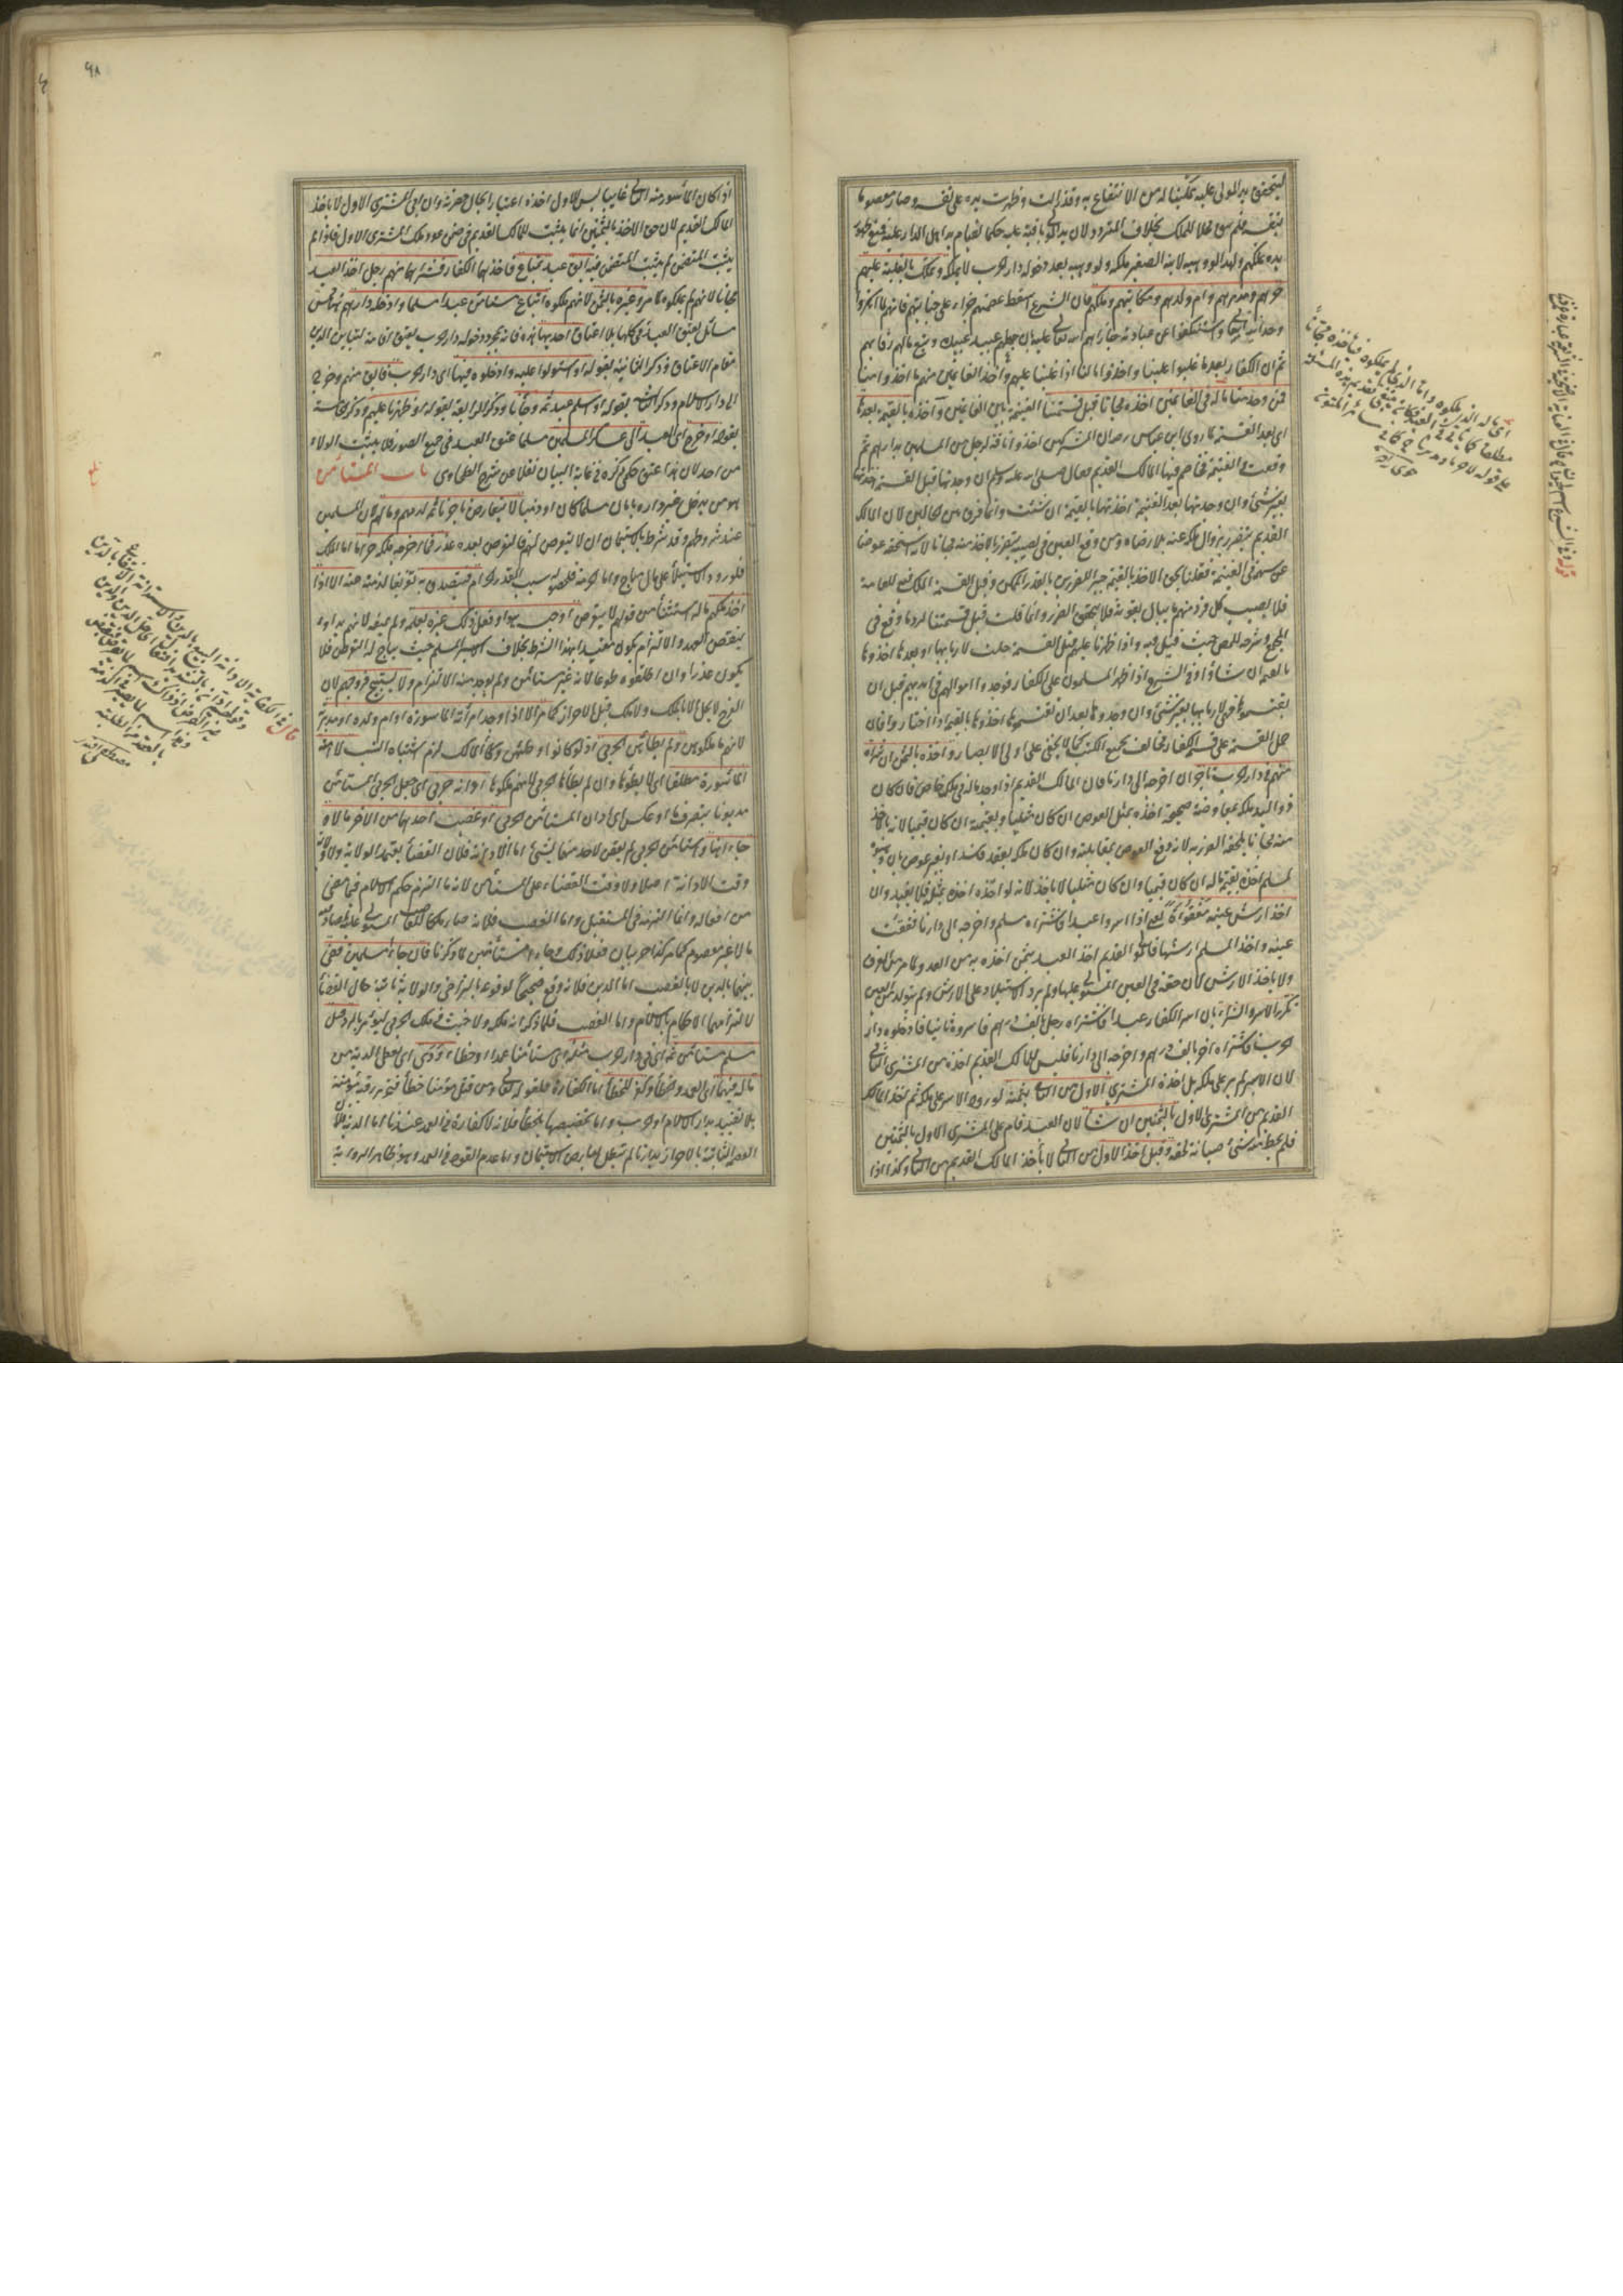 ليتحقق يد المولى عليه تمكينا له من الانتفاع به وقد زالت وظهرت يده على نفسه وصار معصوما
بنفسه فلم يبق محلا للملك بخلاف المتردد لان يد المولى باقية عليه حكما لقيام يد اهل الدار عليه فمنع ظهور
يده ملكهم ولهذا لو وهبه لابنه الصغير ملكه ولو وهبه بعد دخوله دار الحرب لا يملكه ونملك بالغلبة عليهم
حرهم ومدبرهم وام ولدهم ومكاتبهم وملكهم فان الشرع اسقط عصمتهم جزاء على جنايتهم فانهم لما انكروا
وحدانية الله تعالى واستنكفوا عن عبادته جازاهم الله تعالى عليه بان جعلهم عبيد عبيده وتبع مالهم رقابهم
ثم ان الكفار بعد ما غلبوا علينا واخذوا مالنا اذا غلبنا عليهم واخذ الغانمين منهم ما اخذوا منا
فمن وجد منا ماله في الغانمين اخذه مجانا قبل قسمتنا الغنيمة بين الغانمين وآخذه بالقيمة بعدها
اى بعد القسمة لما روى ابن عباس رض ان المشركين اخذوا ناقة لرجل من المسلمين بدارهم ثم
وقعت في الغنيمة فخاصم فيها المالك القديم فقال صلى الله عليه وسلم ان وجدتها قبل القسمة اخذتها
بغير شئ وان وجدتها بعد القسمة اخذتها بالقيمة ان شئت وانما فرق بين الحالين لان المالك
القديم يتضرر بزوال ملكه عنه بلا رضاه ومن وقع العين في نصيبه يتضرر بالاخذ منه مجانا لانه استحقه عوضا
عن سهمه في الغنيمة فقلنا بحق الاخذ بالقيمة جبرا للضررين بالقدر الممكن وقبل القسمة الملك فيه للعامة
فلا يصيب كل فرد منهم ما يبالى بفوته فلا يتحقق الضرر وانما قلت قبل قسمتنا لرد ما وقع في
المجمع وشرحه للمص حيث قيل فيه واذا ظهرنا عليهم قبل القسمة حلت لاربابها او بعدها اخذوها
بالقيمة ان شاؤا وفي الشرح اذا ظهر المسلمون على الكفار فوجدوا اموالهم في ايديهم قبل ان
يقتسموها فهي لاربابها بغير شئ وان وجدوها بعد ان يقتسموها اخذوها بالقيمة اذا اختاروا فان
حمل القسمة على قسمة الكفار مخالف لجميع الكتب كما لا يخفى على اولى الابصار واخذه بالثمن ان شراه
منهم في دار الحرب تاجر ان اخرجه الى دارنا فان المالك القديم اذا وجد ماله في ملك خاص فان كان
ذو اليد ملكه بمعاوضة صحيحة اخذه بمثل العوض ان كان مثليا وبقيمته ان كان قيميا لانه لو اخذ
منه مجانا يلحقه الضرر لانه دفع العوض بمقابلته وان كان ملكه بعقد فاسد او بغير عوض بان وهبوه
لمسلم اخذه بقيمة ماله ان كان قيميا وان كان مثليا لا ياخذ لانه لو اخذه اخذه بمثله فلا يفيد وان
اخذ ارش عينه مفقوءة يعنى اذا اسروا عبدا فاشتراه مسلم واخرجه الى دارنا ففقئت
عينه واخذ المسلم ارشها فالمولى القديم اخذ العبد بثمن اخذه به من العدو لما مر من الفرق
ولا ياخذ الارش لان حقه في العين المستولى عليها ولم يرد الاستيلاء على الارش ولم يتولد من العين
تكرر الاسر والشراء بان اسر الكفار عبدا فاشتراه رجل بالف درهم فاسروه ثانيا فادخلوه دار
الحرب فاشتراه آخر بالف درهم واخرجه الى دارنا فليس للمالك القديم اخذه من المشترى الثانى
لان الاسر لم يرد على ملكه بل اخذه المشترى الاول من الثانى بثمنه لورود الاسر على ملكه ثم اخذ المالك
القديم من المشترى الاول بالثمنين ان شاء لان العبد قام على المشترى الاول بالثمنين
فلم يحط عنه شئ صيانة لحقه وقبل اخذ الاول من الثانى لا يأخذ المالك القديم من الثانى وكذا اذا
٩٨
اذا كان المأسور منه الثانى غايبا ليس للاول اخذه اعتبارا بحال حضرته وان ابى المشترى الاول لا ياخذ
المالك القديم لان حق الاخذ بالثمنين انما يثبت للمالك القديم في ضمن عود ملك المشترى الاول فاذا لم
يثبت المتضمن لم يثبت المتضمن فيه ابق عبد بمتاع فاخذهما الكفار فشراهما منهم رجل اخذ العبد
مجانا لانهم لم يملكوه لما مر وغيره بالثمن لانهم ملكوه ابتاع مستأمن عبدا مسلما وادخله دارهم تهائس
مسائل يعتق العبد في كلها بلا اعتاق احديها هذه فانه بمجرد دخوله دار الحرب يعتق اقامة لتباين الدارين
مقام الاعتاق وذكر الثانية بقوله او استولوا عليه وادخلوه فيها اى دار الحرب فابق منهم وخرج
الى دار الاسلام وذكر الثالثة بقوله او اسلم عبد ثمه وجاءنا وذكر الرابعة بقوله او ظهرنا عليهم وذكر الخامسة
بقوله او خرج اى العبد الى عسكر المسلمين مسلما عتق العبد في جميع الصور ولا يثبت الولاء
من احد لان هذا عتق حكمى ذكره في غاية البيان نقلا عن شرح الطحاوى باب المستأمن
هو من يدخل غير داره بامان مسلما كان او حربيا لا يتعرض تاجرنا ثمه لدمهم ومالهم لان المسلمين
عند شروطهم وقد شرط بالاستيمان ان لا يتعرض لهم فالتعرض بعده غدر فما اخرجه ملكه حراما اما الملك
فلورود الاستيلاء على مال مباح واما الحرمة فلحصوله بسبب الغدر الحرام فيتصدق به تفريغا لذمته عنه الا اذا
اخذ ملكهم ماله استثناء من قوله لا يتعرض او حبسه او فعل ذلك غيره بعلمه ولم يمنعه لانهم بدأوا
بنقض العهد والالتزام يكون مقيدا بهذا الشرط بخلاف الاسير المسلم حيث يباح له التعرض فلا
يكون غدرا وان اطلقوه طوعا لانه غير مستأمن ولم يوجد منه الالتزام ولا يستبيح فروجهم لان
الفرج لا يحل الا بالملك ولا ملك قبل الاحراز كما مر الا اذا وجد امرأته المأسورة او ام ولده او مدبرته
لانهم ما ملكوهن ولم يطأهن الحربى اذ لو كانوا وطئوهن وطئ المالك لزم اشتباه النسب لا امته
المأسورة مطلقا اى لا يطؤها وان لم يطأها الحربى لانهم ملكوها ادانه حربى اى جعل الحربى المستأمن
مديونا بتصرف ما او عكس اى ادان المستأمن الحربى او غصب احدهما من الآخر مالا و
جاءا هنا واستأمن الحربى لم يقض لاحد منهما بشئ اما الادانة فلان القضاء يعتمد الولاية ولا ولاية
وقت الادانة اصلا ولا وقت القضاء على المستأمن لانه ما التزم حكم الاسلام فيما مضى
من افعاله وانما التزمه في المستقبل واما الغصب فلانه صار ملكا للغاصب المستولى عليه لمصادفته
مالا غير معصوم كما مر كذا حربيان فعلا ذلك وجاءا مستأمنين لما ذكرنا فان جاءا مسلمين قضى
بينهما بالدين لا بالغصب اما الدين فلانه وقع صحيحا لوقوعه بالتراضى والولاية ثابتة حال القضاء
لالتزامهما الاحكام بالاسلام واما الغصب فلما ذكر انه ملكه ولا خبث في ملك الحربى ليؤمر بالرد قتل
مسلم مستأمن ثمه اى في دار الحرب مثله اى مستأمنا عمدا او خطأ ودى اى يعطى الدية من
ماله فيهما اى العمد والخطأ وكفر للخطأ اما الكفارة فلقوله تعالى ومن قتل مؤمنا خطأ فتحرير رقبة مؤمنة
بلا تقييد بدار الاسلام او الحرب واما تخصيصها بالخطأ فلانه لا كفارة في العمد عندنا اما الدية فلان
العصمة الثابتة بالاحراز بدارنا لم تبطل بعارض الاستيمان واما عدم القود في العمد وهو ظاهر الرواية